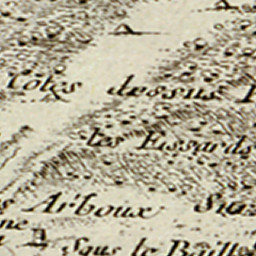 Côtes dessus
les Essards
Arboux Sus
Sous le Baille